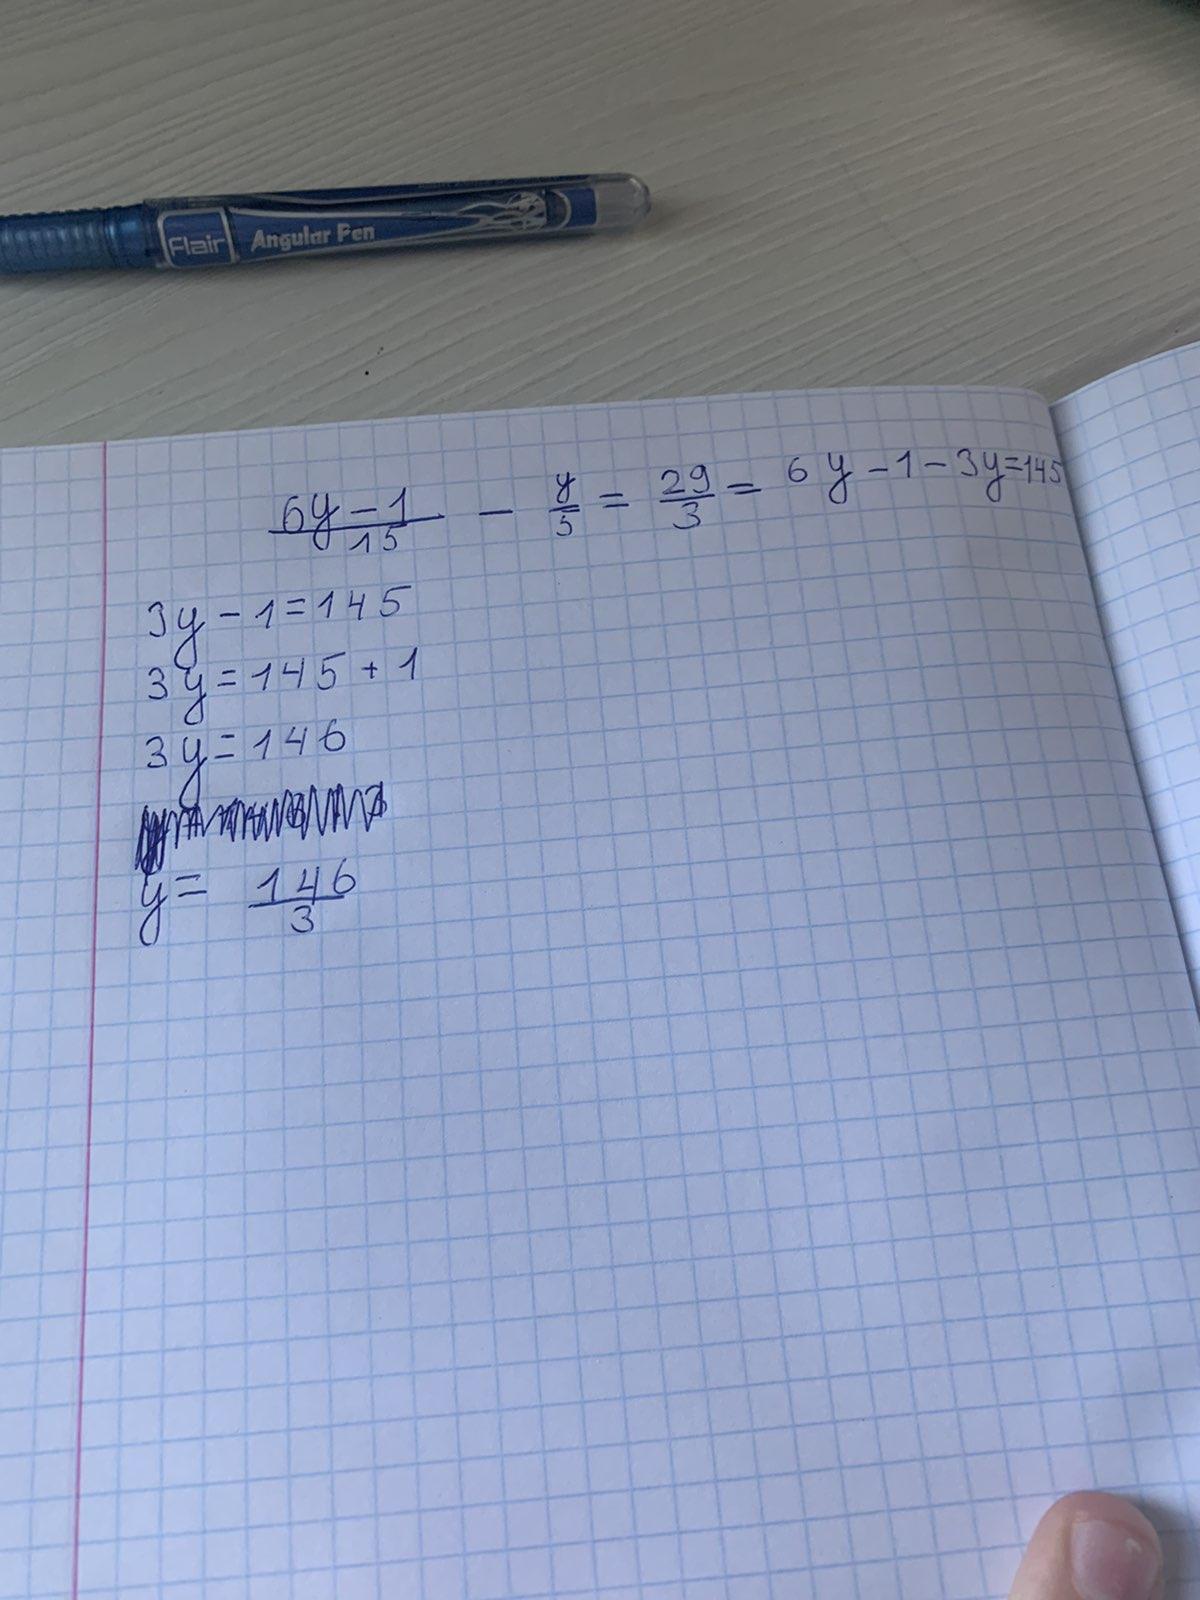 Flair Angular Pen
6y-1/15 - y/5 = 29/3 = 6y-1-3y=145
3y-1=145
3y=145+1
3y=146
y= 146/3